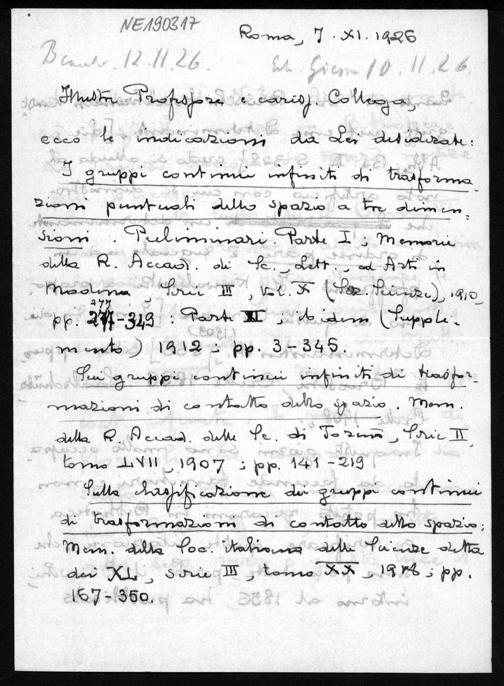 NE190317
Roma, 7. XI. 1926
Beantw. 12.II.26.
10.II.26.
Illustre Professore e cariss. Collega,
ecco le indicazioni da Lei desiderate:
I gruppi continui infiniti di trasforma-
zioni puntuali dello spazio a tre dimen-
sioni. Preliminari. Parte I; Memorie
della R. Accad. di Sc., Lett., ed Arti in
Modena Serie III, vol. X (Sez. Scienze), 1910,
277
pp. -319 : Parte II; ibidem (Supple-
mento) 1912; pp. 3-345.
Sui gruppi continui infiniti di trasfor-
mazioni di contatto dello spazio. Mem.
della R. Accad. delle Sc. di Torino, Serie II,
tomo LVII, 1907; pp. 141-219
Sulla classificazione dei gruppi continui
di trasformazioni di contatto dello spazio;
Mem. della Soc. italiana delle Scienze detta
dei XL, serie III, tomo XX, ; pp.
167-350.